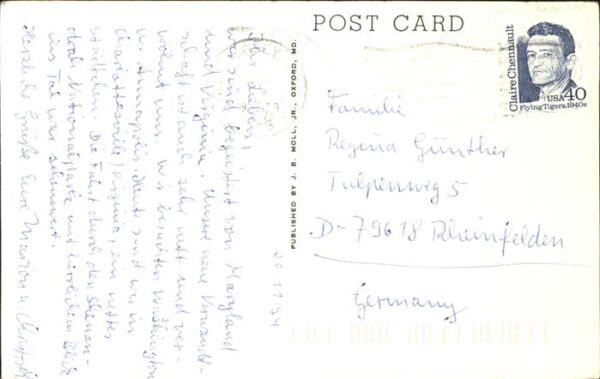 POST CARD
Claire Chennault
Flying Tigers, 1940s
USA 40
PUBLISHED BY J. B. MOLL, JR., OXFORD, MD.
30 11 94
Ihr Lieben,
wir sind begeistert von Maryland
und Virginia. Unsere neue Verwandt-
schaft ist auch sehr nett und ver-
wöhnt uns. Wir besuchten Washington
u. Annapolis. Heute sind wir in
Charlottesville/Virginia, ein nettes
Städtchen. Die Fahrt durch den Shenan-
doah Nationalpark mit herrlichem Blick
ins Tal war sehenswert.
Herzliche Grüße Eure Marion u. Christoph
Familie
Regina Günther
Tulpenweg 5
D-79618 Rheinfelden
Germany